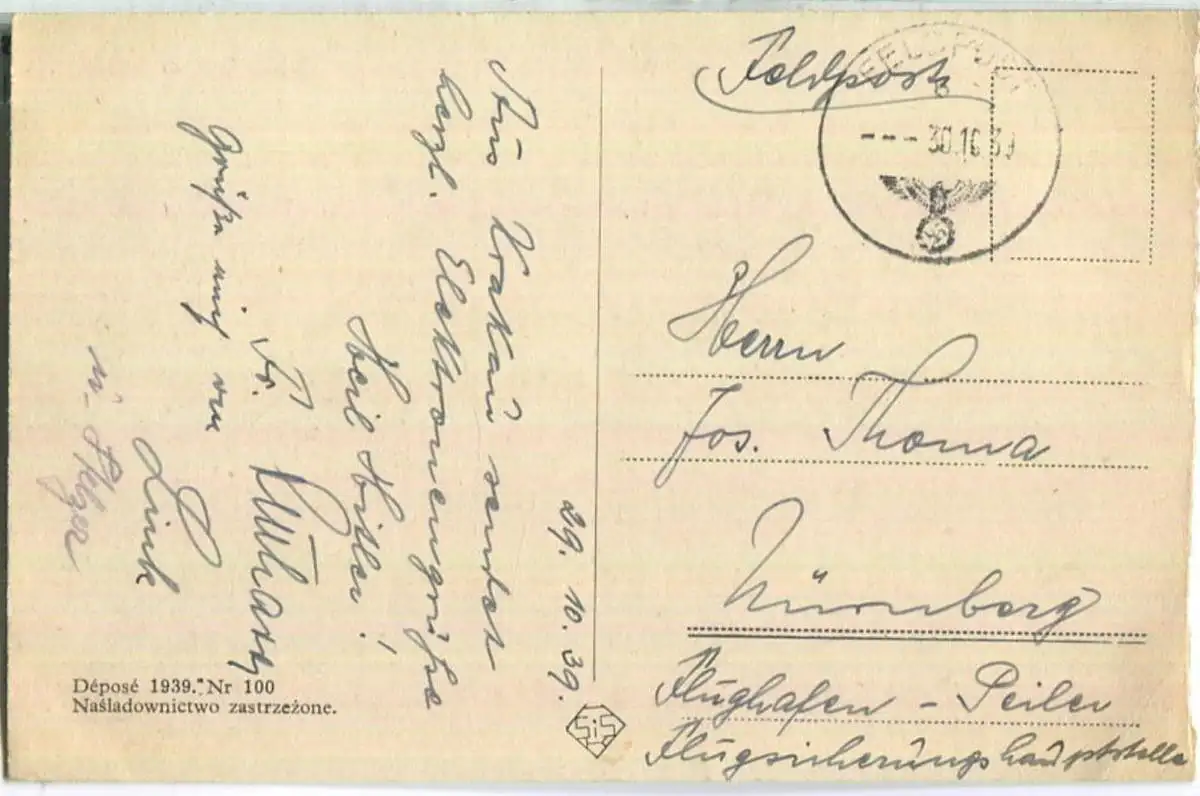 29. 10. 39.
Aus Krakau sendet
herzl. Elektronengrüße
Heil Hitler!
Fr.
Grüße auch von
Link
Déposé 1939. Nr 100
Naśladownictwo zastrzeżone.
SiS
Feldpost
FELDPOST
--- 30.10.39
Herrn
Jos. Thoma
Nürnberg
Flughafen - Peiler
Flugsicherungshauptstelle